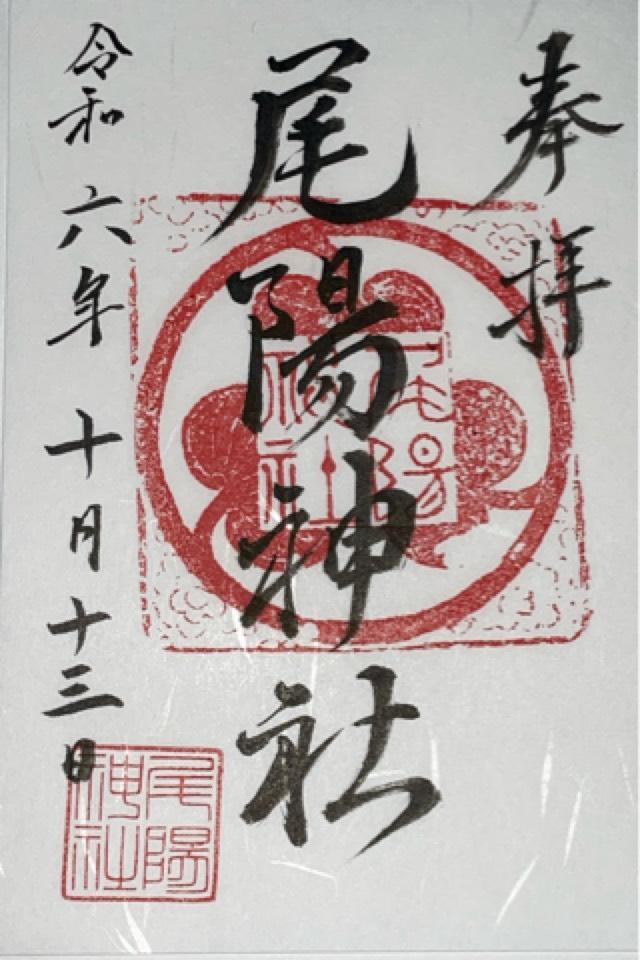 奉拝
尾陽神社
令和六年十月十三日
尾陽神社
尾陽神社